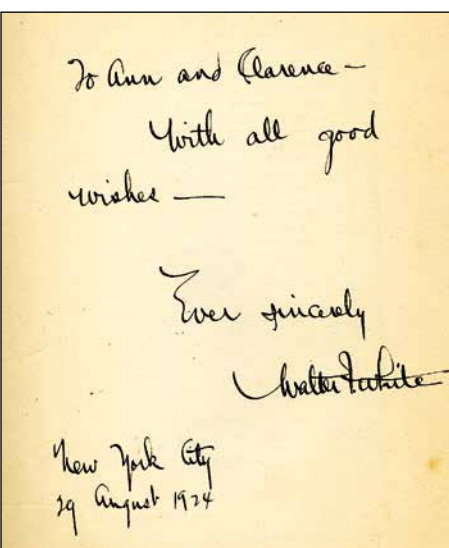 To Ann and Clarence –
With all good
wishes —
Ever sincerely
Walter F. White
New York City
29 August 1924